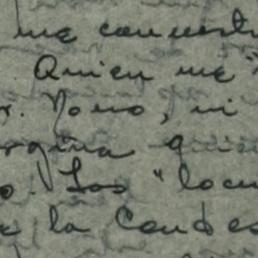 me convert
Quien me "
r. Nono, ni
rgina q
o. Los "locu
e la Condes